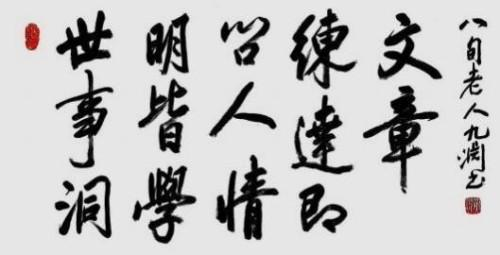 世事洞
明皆學
問人情
練達即
文章
八旬老人九渊书